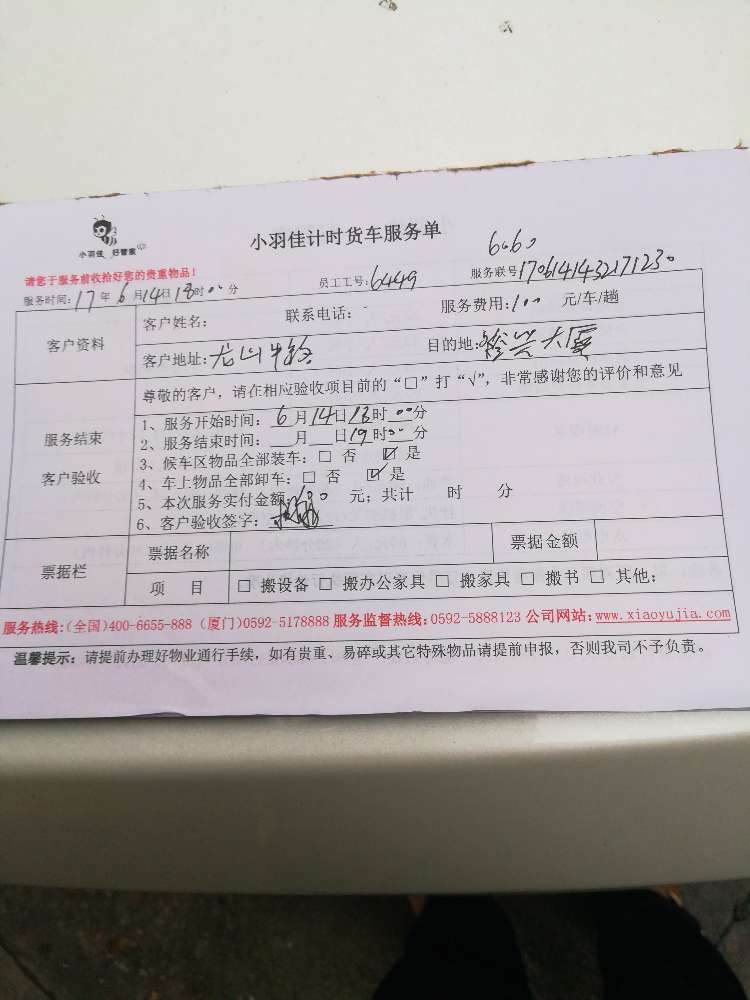 小羽佳 好管家
小羽佳计时货车服务单
6060
请您于服务前收拾好您的贵重物品!
服务时间:17年6月14日18时00分 员工工号:6449 服务联号1706141432171230
客户资料
客户姓名: 联系电话: 服务费用:100 元/车/趟
客户地址:龙山 目的地:裕兴大厦
服务结束
客户验收
尊敬的客户,请在相应验收项目前的“□”打“√”,非常感谢您的评价和意见
1、服务开始时间:6月14日18时00分
2、服务结束时间:___月___日19时00分
3、候车区物品全部装车:□ 否 ☑ 是
4、车上物品全部卸车:□ 否 ☑ 是
5、本次服务实付金额 100 元;共计 时 分
6、客户验收签字:
票据栏
票据名称 票据金额
项 目 □ 搬设备 □ 搬办公家具 □ 搬家具 □ 搬书 □ 其他:
服务热线:(全国)400-6655-888 (厦门)0592-5178888 服务监督热线:0592-5888123 公司网站:www.xiaoyujia.com
温馨提示:请提前办理好物业通行手续,如有贵重、易碎或其它特殊物品请提前申报,否则我司不予负责。